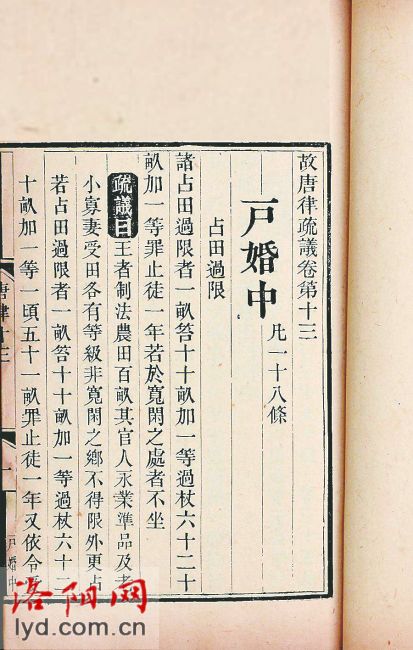 故唐律疏議卷第十三
戸婚中
凡一十八條
占田過限
諸占田過限者一畝笞十十畝加一等過杖六十二十
畝加一等罪止徒一年若於寬閑之處者不坐
疏議曰王者制法農田百畝其官人永業準品及老
小寡妻受田各有等級非寬閑之鄉不得限外更占
若占田過限者一畝笞十十畝加一等過杖六十二
十畝加一等一頃五十一畝罪止徒一年又依令
唐律十三
一
戸婚中
洛阳网
lyd.com.cn